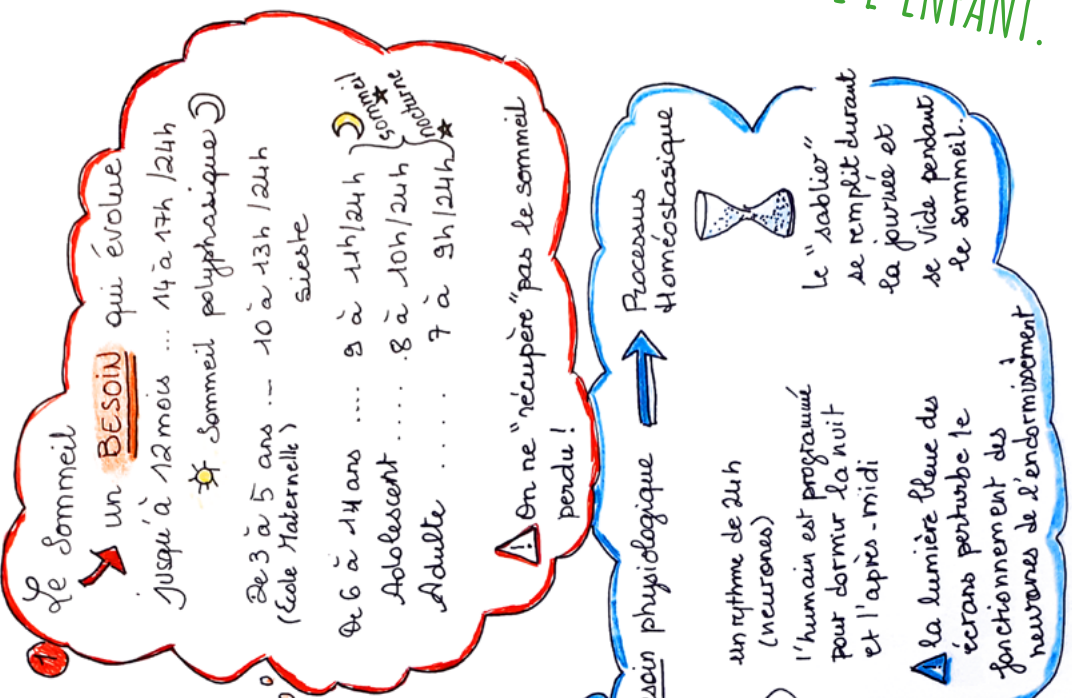 L'ENFANT.
1
Le Sommeil
un BESOIN qui évolue
jusqu'à 12 mois ... 14 à 17h /24h
Sommeil polyphasique
De 3 à 5 ans ... 10 à 13h /24h
(École Maternelle) sieste
De 6 à 14 ans .... 9 à 11h/24h
Adolescent ..... 8 à 10h/24h
Adulte ..... 7 à 9h/24h
sommeil
nocturne
On ne "récupère" pas le sommeil
perdu !
physiologique
Processus
Homéostasique
un rythme de 24h
(neurones)
l'humain est programmé
pour dormir la nuit
et l'après-midi
Le "sablier"
se remplit durant
la journée et
se vide pendant
le sommeil.
la lumière bleue des
écrans perturbe le
fonctionnement des
neurones de l'endormissement